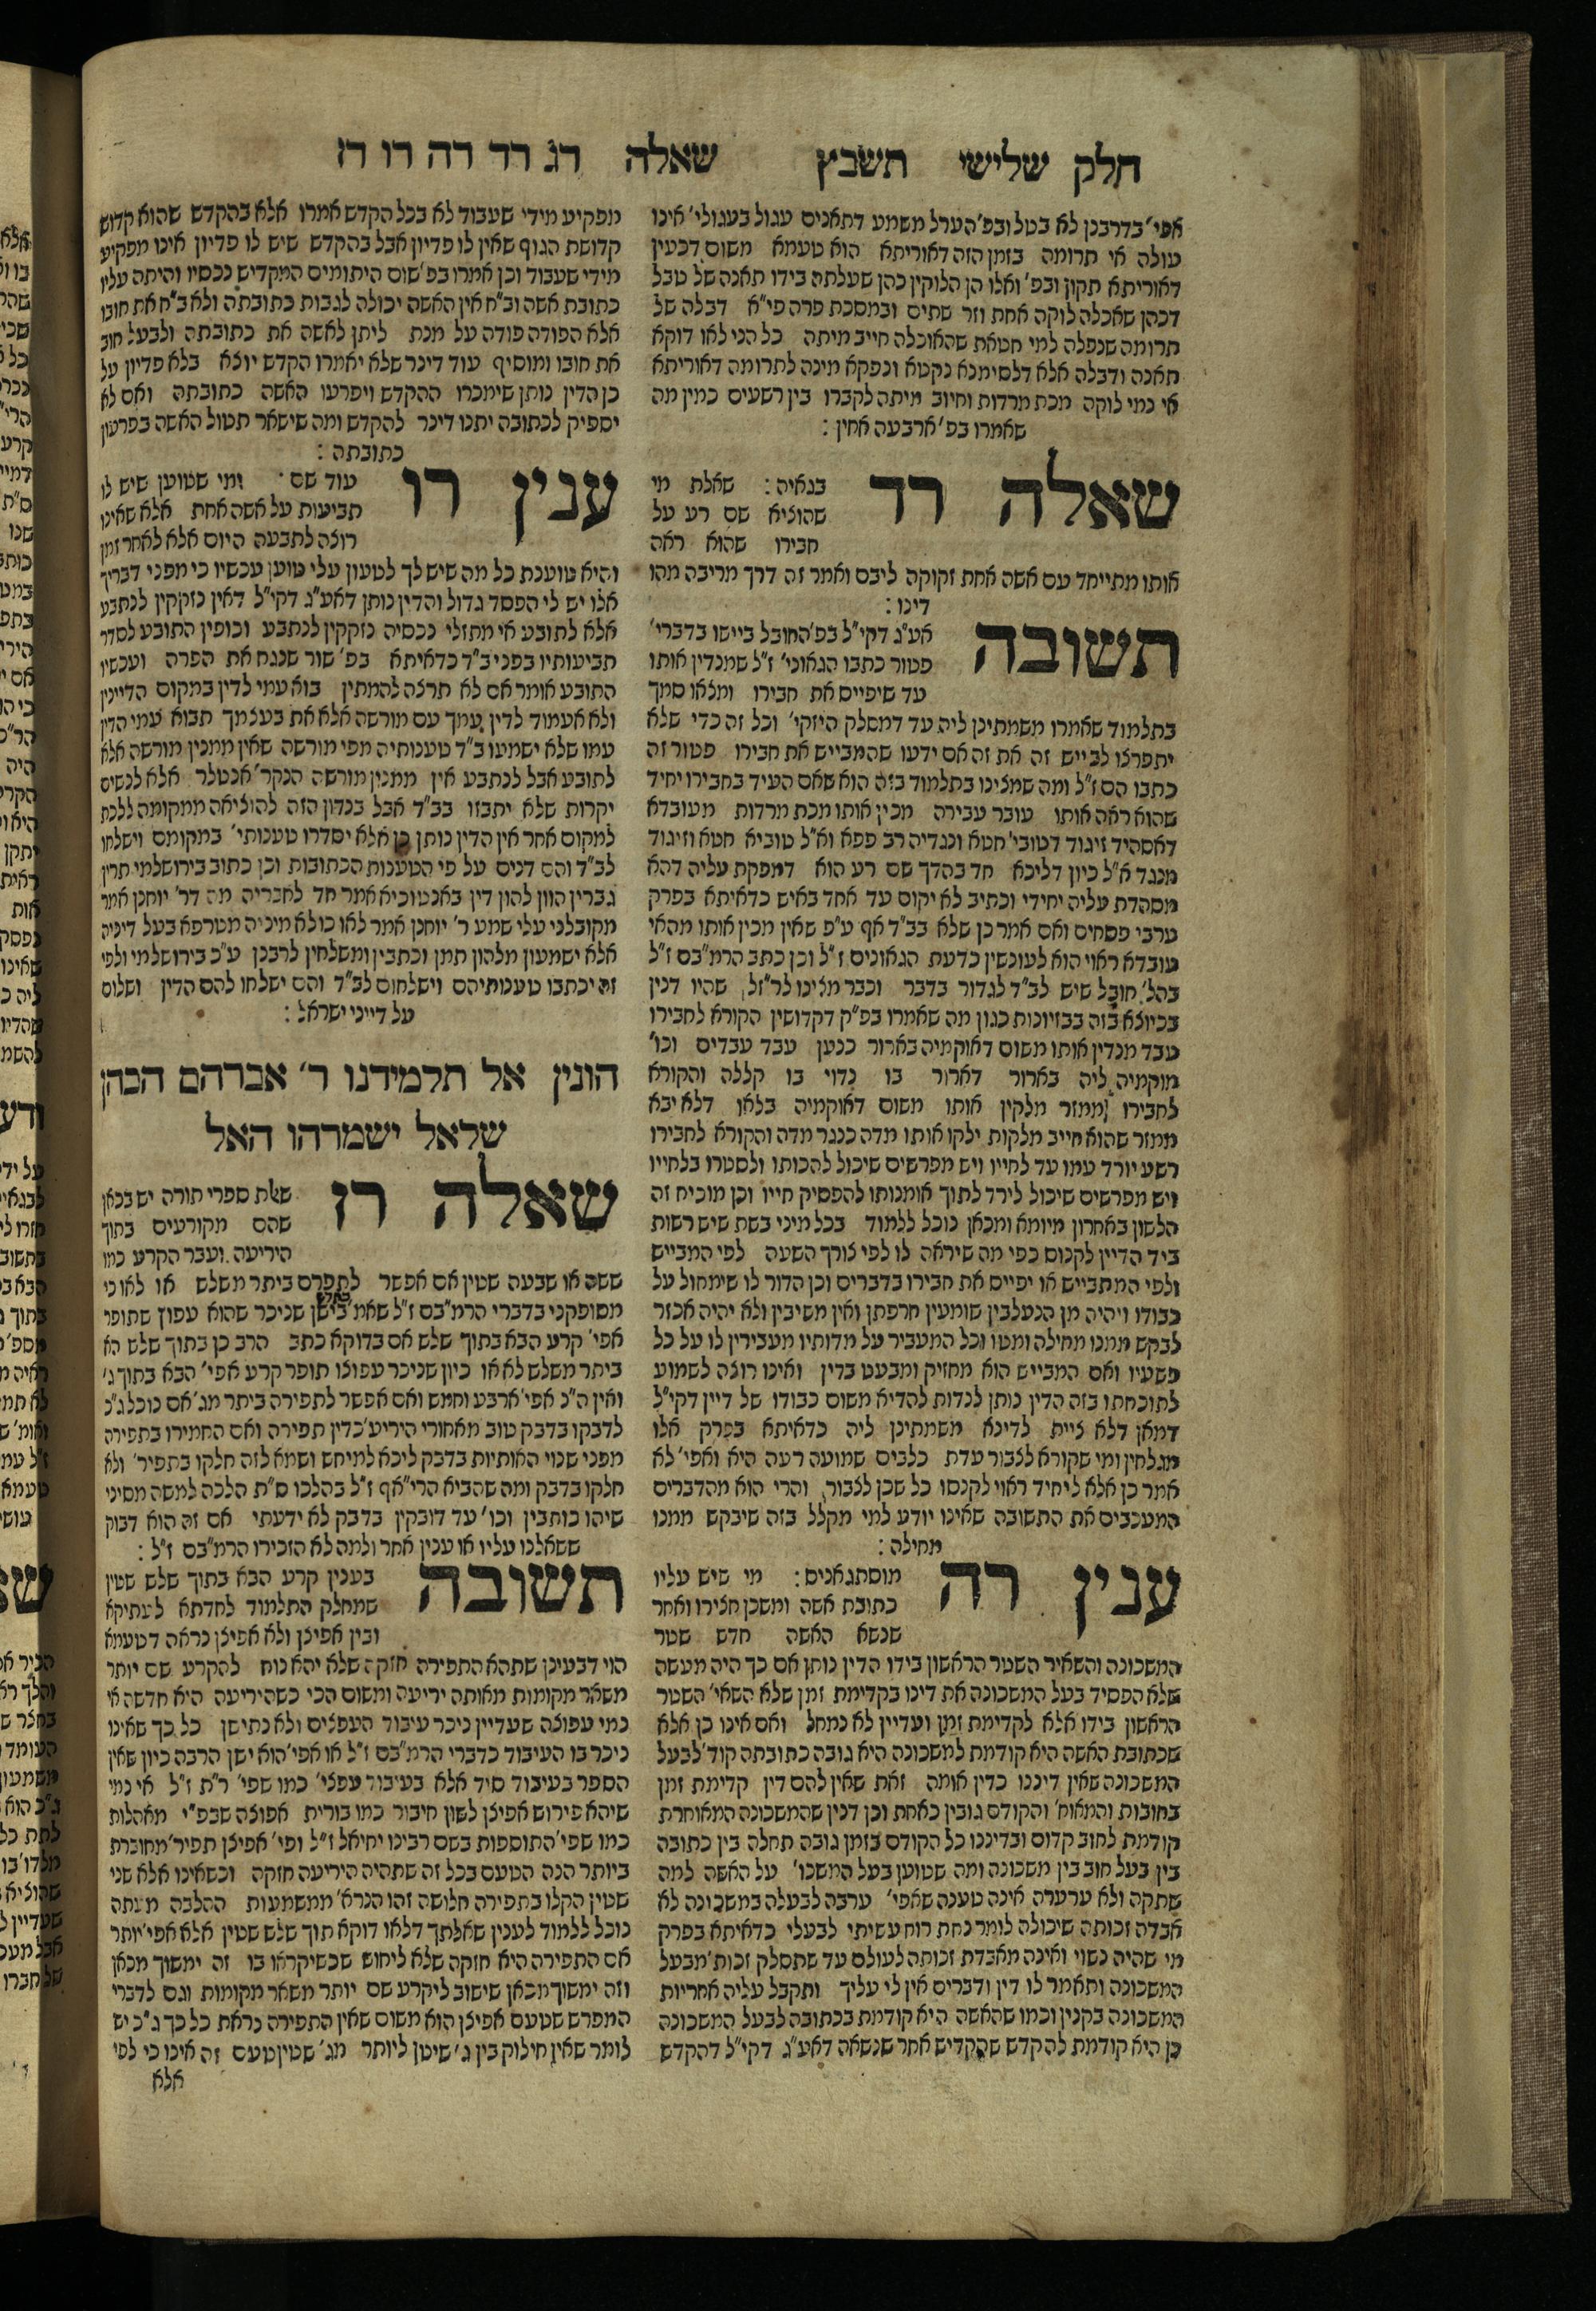 חלק שלישי תשבץ שאלה רג רד רה רו רז
אפי' בדרבנן לא בטל ובפ' הערל משמע דתאנים עגול בעגולי' אינו
עולה אי תרומה בזמן הזה דאוריתא הוא טעמא משום דבעין
דאוריתא תקון ובפ' ואלו הן הלוקין כהן שעלתה בידו תאנה של טבל
דכהן שאכלה לוקה אחת וזר שתים ובמסכת פרה פי"א דבלה של
תרומה שנפלה למי חטאת שהאוכלה חייב מיתה כל הני לאו דוקא
תאנה ודבלה אלא דלסימנא נקטא ונפקא מינה לתרומה דאוריתא
אי נמי לוקה מכת מרדות וחיוב מיתה לקברו בין רשעים כמין מה
שאמרו בפ' ארבעה אחין :
שאלה רד
בגאיה : שאלת מי
שהוציא שם רע על
חבירו שהוא ראה
אותו מתייחד עם אשה אחת זקוקה ליבם ואמר זה דרך מריבה מהו
דינו :
תשובה
אע"ג דקי"ל בפ' החובל ביישו בדברי'
פטור כתבו הגאוני' ז"ל שמנדין אותו
עד שיפייס את חבירו ומצאו סמך
בתלמוד שאמרו משמתינן ליה עד דמסלק היזקי' וכל זה כדי שלא
יתפרצו לבייש זה את זה אם ידעו שהמבייש את חבירו פטור זה
כתבו הם ז"ל ומה שמצינו בתלמוד בזה הוא שאם העיד בחבירו יחיד
שהוא ראה אותו עובר עבירה מכין אותו מכת מרדות מעובדא
דאסהיד זיגוד דטובי' חטא ונגדיה רב פפא וא"ל טוביא חטא וזיגוד
מנגד א"ל כיון דליכא חד בהדך שם רע הוא דמפקת עליה דהא
מסהדת עליה יחידי וכתיב לא יקום עד אחד באיש כדאיתא בפרק
ערבי פסחים ואם אמר כן שלא בב"ד אף ע"פ שאין מכין אותו מהאי
עובדא ראוי הוא לעונשין כדעת הגאונים ז"ל וכן כתב הרמ"בם ז"ל
בהל' חובל שיש לב"ד לגדור בדבר וכבר מצינו לר"זל שהיו דנין
בכיוצא בזה בבזיונות כגון מה שאמרו בפ"ק דקדושין הקורא לחבירו
עבד מנדין אותו משום דאוקמיה בארור כנען עבד עבדים וכו'
מוקמיה ליה בארור דארור בו נדוי בו קללה והקורא
לחבירו ממזר מלקין אותו משום דאוקמיה בלאו דלא יבא
ממזר שהוא חייב מלקות ילקו אותו מדה כנגד מדה והקורא לחבירו
רשע יורד עמו עד לחייו ויש מפרשים שיכול להכותו ולסטרו בלחייו
ויש מפרשים שיכול לירד לתוך אומנותו להפסיק חייו וכן מוכיח זה
הלשון באחרון מיומא ומכאן נוכל ללמוד בכל מיני בשת שיש רשות
ביד הדיין לקנוס כפי מה שיראה לו לפי צורך השעה לפי המבייש
ולפי המתבייש או יפייס את חבירו בדברים וכן הדור לו שימחול על
כבודו ויהיה מן הנעלבין שומעין חרפתן ואין משיבין ולא יהיה אכזר
לבקש ממנו מחילה ומטו וכל המעביר על מדותיו מעבירין לו על כל
פשעיו ואם המבייש הוא מחזיק ומבעט בדין ואינו רוצה לשמוע
לתוכחתו בזה הדין נותן לנדות להדיא משום כבודו של דיין דקי"ל
דמאן דלא ציית לדינא משמתינן ליה כדאיתא בפרק אלו
מגלחין ומי שקורא לצבור עדת כלבים שמועה רעה היא ואפי' לא
אמר כן אלא ליחיד ראוי לקנסו כל שכן לצבור והרי הוא מהדברים
המעכבים את התשובה שאינו יודע למי מקלל בזה שיבקש ממנו
מחילה :
ענין רה
מוסתגאנים : מי שיש עליו
כתובת אשה ומשכן חצירו ואחר
שנשא האשה חדש שטר
המשכונה והשאיר השטר הראשון בידו הדין נותן אם כך היה מעשה
שלא הפסיד בעל המשכונה את דינו בקדימת זמן שלא השאי' השטר
הראשון בידו אלא לקדימת זמן ועדיין לא נמחל ואם אינו כן אלא
שכתובת האשה היא קודמת למשכונה היא גובה כתובתה קוד' לבעל
המשכונה שאין דיננו כדין אומה זאת שאין להם דין קדימת זמן
בחובות והמאוח' והקודם גובין כאחת וכן דנין שהמשכונה המאוחרת
קודמת לחוב קדום ובדיננו כל הקודם בזמן גובה תחלה בין כתובה
בין בעל חוב בין משכונה ומה שטוען בעל המשכו' על האשה למה
שתקה ולא ערערה אינה טענה שאפי' ערבה לבעלה במשכונה לא
אבדה זכותה שיכולה לומר נחת רוח עשיתי לבעלי כדאיתא בפרק
מי שהיה נשוי ואינה מאבדת זכותה לעולם עד שתסלק זכות' מבעל
המשכונה ותאמר לו דין ודברים אין לי עליך ותקבל עליה אחריות
המשכונה בקנין וכמו שהאשה היא קודמת בכתובה לבעל המשכונה
כן היא קודמת להקדש שהקדיש אחר שנשאה דאע"ג דקי"ל דהקדש
מפקיע מידי שעבוד לא בכל הקדש אמרו אלא בהקדש שהוא קדוש
קדושת הגוף שאין לו פדיון אבל בהקדש שיש לו פדיון אינו מפקיע
מידי שעבוד וכן אמרו בפ' שום היתומים המקדיש נכסיו והיתה עליו
כתובת אשה וב"ח אין האשה יכולה לגבות כתובתה ולא ב"ח את חובו
אלא הפודה פודה על מנת ליתן לאשה את כתובתה ולבעל חוב
את חובו ומוסיף עוד דינר שלא יאמרו הקדש יוצא בלא פדיון על
כן הדין נותן שימכרו ההקדש ויפרעו האשה כתובתה ואם לא
יספיק לכתובה יתנו דינר להקדש ומה שישאר תטול האשה בפרעון
כתובתה :
ענין רו
עוד שם ומי שטוען שיש לו
תביעות על אשה אחת אלא שאינו
רוצה לתבעה היום אלא לאחר זמן
והיא טוענת כל מה שיש לך לטעון עלי טוען עכשיו כי מפני דבריך
אלו יש לי הפסד גדול והדין נותן דאע"ג דקי"ל דאין נזקקין לנתבע
אלא לתובע אי מתזלי נכסיה נזקקין לנתבע וכופין התובע לסדר
תביעותיו בפני ב"ד כדאיתא בפ' שור שנגח את הפרה ועכשיו
התובע אומר אם לא תרצה להמתין בוא עמי לדין במקום הדיינין
ולא אעמוד לדין עמך עם מורשה אלא את בעצמך תבוא עמי הדין
עמו שלא ישמעו ב"ד טענותיה מפי מורשה שאין ממנין מורשה אלא
לתובע אבל לנתבע אין ממנין מורשה הנקר' אנטלר אלא לנשים
יקרות שלא יתבזו בב"ד אבל בנדון הזה להוציאה ממקומה ללכת
למקום אחר אין הדין נותן כן אלא יסדרו טענותי' במקומם וישלחו
לב"ד והם דנים על פי הטענות הכתובות וכן כתוב בירושלמי תרין
גברין הוון להון דין באנטוכיא אמר חד לחבריה מה דר' יוחנן אמר
מקובלני עלי שמע ר' יוחנן אמר לאו כולא מיניה מטרפא בעל דיניה
אלא ישמעון מלהון תמן וכתבין ומשלחין לרבנן ע"כ בירושלמי ולפי
זה יכתבו טענותיהם וישלחום לב"ד והם ישלחו להם הדין ושלום
על דייני ישראל :
הונין אל תלמידנו ר' אברהם הכהן
שלאל ישמרהו האל
שאלה רז
שלת ספרי תורה יש בכאן
שהם מקורעים בתוך
היריעה ועבר הקרע כמו
ששה או שבעה שטין אם אפשר לתפרם ביתר משלש או לאו כי
מסופקני בדברי הרמ"בם ז"ל שאמ' בישן שניכר שהוא עפוץ שתופר
אפי' קרע הבא בתוך שלש אם בדוקא כתב הרב כן בתוך שלש הא
ביתר משלש לא או כיון שניכר עפוצו תופר קרע אפי' הבא בתוך ג'
ואין ה"נ אפי' ארבע וחמש ואם אפשר לתפירה ביתר מג' אם נוכל ג"כ
לדבקו בדבק טוב מאחורי היריע' כדין תפירה ואם החמירו בתפירה
מפני שנוי האותיות בדבק ליכא למיחש ושמא לזה חלקו בתפיר' ולא
חלקו בדבק ומה שהביא הרי"אף ז"ל בהלכו ס"ת הלכה למשה מסיני
שיהו כותבין וכו' עד דובקין בדבק לא ידעתי אם זה הוא דבוק
ששאלנו עליו או ענין אחר ולמה לא הזכירו הרמ"בם ז"ל :
תשובה
בענין קרע הבא בתוך שלש שטין
שמחלק התלמוד לחדתא לעתיקא
ובין אפיצן ולא אפיצן נראה דטעמא
הוי דבעינן שתהא התפירה חזקה שלא יהא נוח להקרע שם יותר
משאר מקומות מאותה יריעה ומשום הכי כשהיריעה היא חדשה אי
נמי עפוצה שעדיין ניכר עיבוד העפצים ולא נתישן כל כך שאינו
ניכר בו העיבוד כדברי הרמ"בם ז"ל או אפי' הוא ישן הרבה כיון שאין
הספר בעיבוד סיד אלא בעיבוד עפצי' כמו שפי' ר"ת ז"ל אי נמי
שיהא פירוש אפיצן לשון חיבור כמו בורית אפוצה שבפ"י מאהלות
כמו שפי' התוספות בשם רבינו יחיאל ז"ל ופי' אפיצן תפיר' מחוברת
ביותר הנה הטעם בכל זה שתהיה היריעה חזקה וכשאינו אלא שני
שטין הקלו בתפירה חלושה זהו הנרא' ממשמעות ההלכה מעתה
נוכל ללמוד לענין שאלתך דלאו דוקא תוך שלש שטין אלא אפי' יותר
אם התפירה היא חזקה שלא ליחוש שכשיקראו בו זה ימשוך מכאן
וזה ימשוך מכאן שישוב ליקרע שם יותר משאר מקומות וגם לדברי
המפרש שטעם אפיצן הוא משום שאין התפירה נראת כל כך ג"כ יש
לומר שאין חילוק בין ג' שיטן ליותר מג' שטין טעם זה אינו כי לפי
אלא